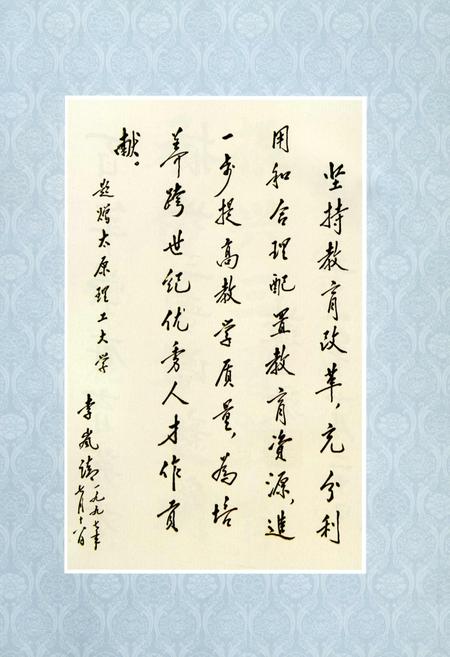 坚持教育改革，充分利
用和合理配置教育资源，進
一步提高教学质量，為培
养跨世纪优秀人才作贡
献。
题赠太原理工大学
李岚清
一九九七年
七月十八日